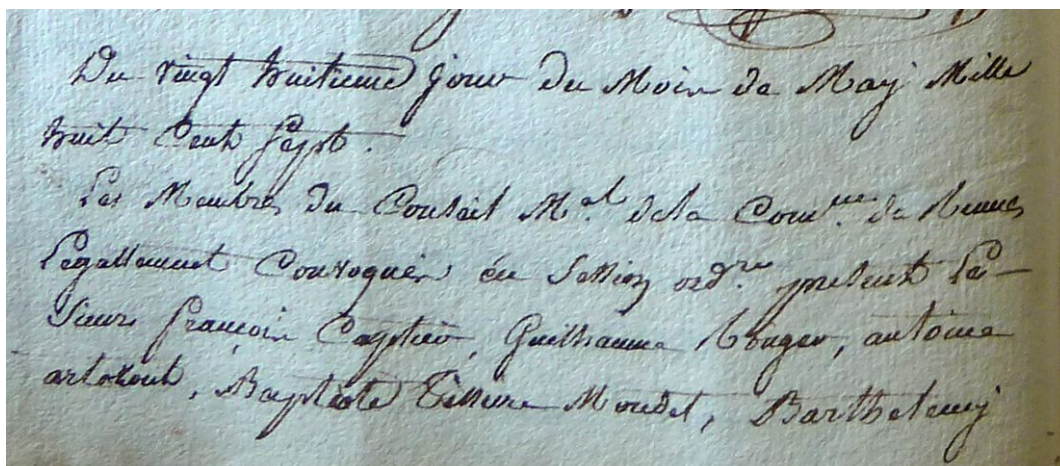 Du vingt huitieme jour du Mois de May Mille
huit Cent Sept.
Les Membres du Conseil M.al de la Com.ne de Rennes
Legallement Convoqués en Session ord.re present Les
Sieurs françois Captier, Guilhaume Rouger, antoine
artozout, Baptiste Tisseire Moudet, Barthelemy